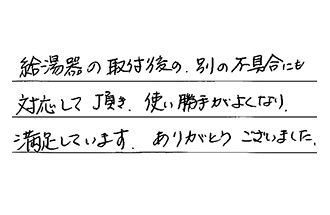 給湯器の取付後の、別の不具合にも
対応して頂き、使い勝手がよくなり、
満足しています。ありがとうございました。